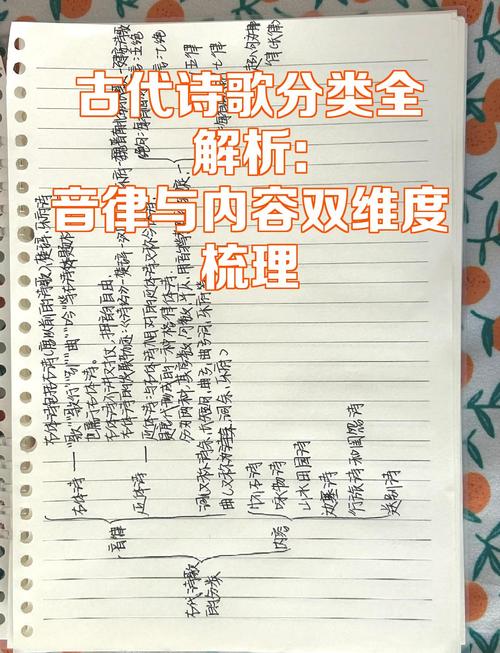 古代诗歌分类全
解析:
音律与内容双维度
梳理
古代诗歌
的分类
音律
古体诗
古体诗包括古诗(唐以前的诗歌)、楚辞、乐府诗
"歌""歌行""引""曲""吟"
也属于古体诗。
古体诗不讲对仗,押韵自由。
古体诗的发展轨迹:《诗经》→楚辞→
近体诗
近体诗:与古体诗相对的近体诗又称今体诗
是唐代形成的一种格律体诗
分为两种,其字数、句数、平仄、用韵
五律
七律
词(又称诗余、长短句、曲子、曲子词、乐府等
曲(又称为词余、乐府)
内容
怀古诗
咏物诗
山水田园诗
边塞诗
行旅诗和闺怨诗
送别诗